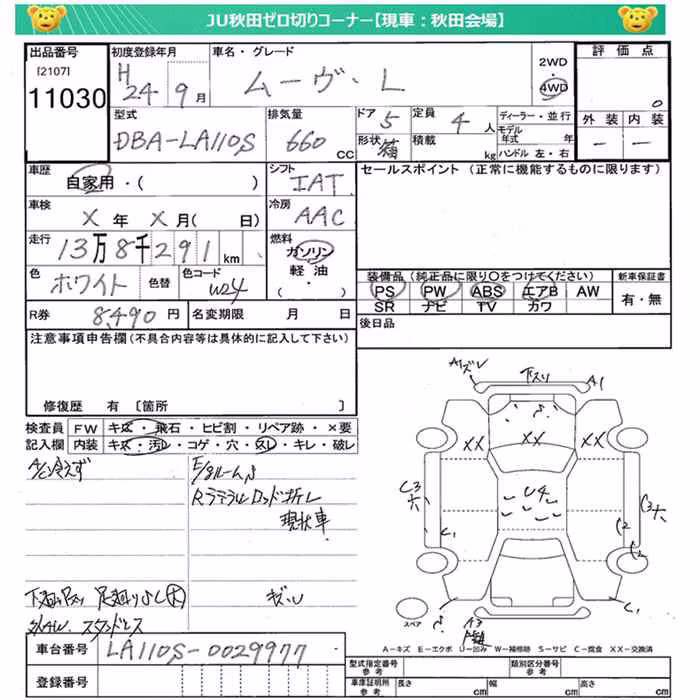 JU秋田ゼロ切りコーナー【現車:秋田会場】
出品番号 初度登録年月 車名・グレード 2WD 評価点
[2107] 11030 H 24年 9月 ムーヴ・L 4WD 0
型式 排気量 ドア 定員 ディーラー・並行 外装 内装
DBA-LA110S 660 CC 5 4人 モデル年式 年 — —
形状 箱 積載 kg ハンドル 左・右
車歴 自家用・( ) シフト IAT セールスポイント (正常に機能するものに限ります)
車検 X年 X月( 日) 冷房 AAC
走行 13万8千291km 燃料 ガソリン 軽油 ( ・ )
色 ホワイト 色替 色コード W24
装備品(純正品に限り〇をつけてください) 新車保証書
PS PW ABS エアB AW 有・無
SR ナビ TV カワ
R券 8,490円 名変期限 月 日 後日品
注意事項申告欄(不具合内容等は具体的に記入して下さい)
修復歴 有 〔箇所 〕
検査員 FW キズ・飛石・ヒビ割・リペア跡・×要
記入欄 内装 キズ・汚レ・コゲ・穴・スレ・キレ・破レ
A/C冷えず E/gルーム
Rラテラルロッド折レ
現状車
スタッドレス
A1 A1
下スリ
XX XX XX
U4
C3 C3
C1 C2
C1
A3
スペア
A−キズ E−エクボ U−凹み W−補修跡 S−サビ C−腐食 XX−交換済
車台番号 LA110S-0029977
登録番号
型式指定番号 参考 類別区分番号 参考
車庫証明所 参考 長さ cm 幅 cm 高さ cm